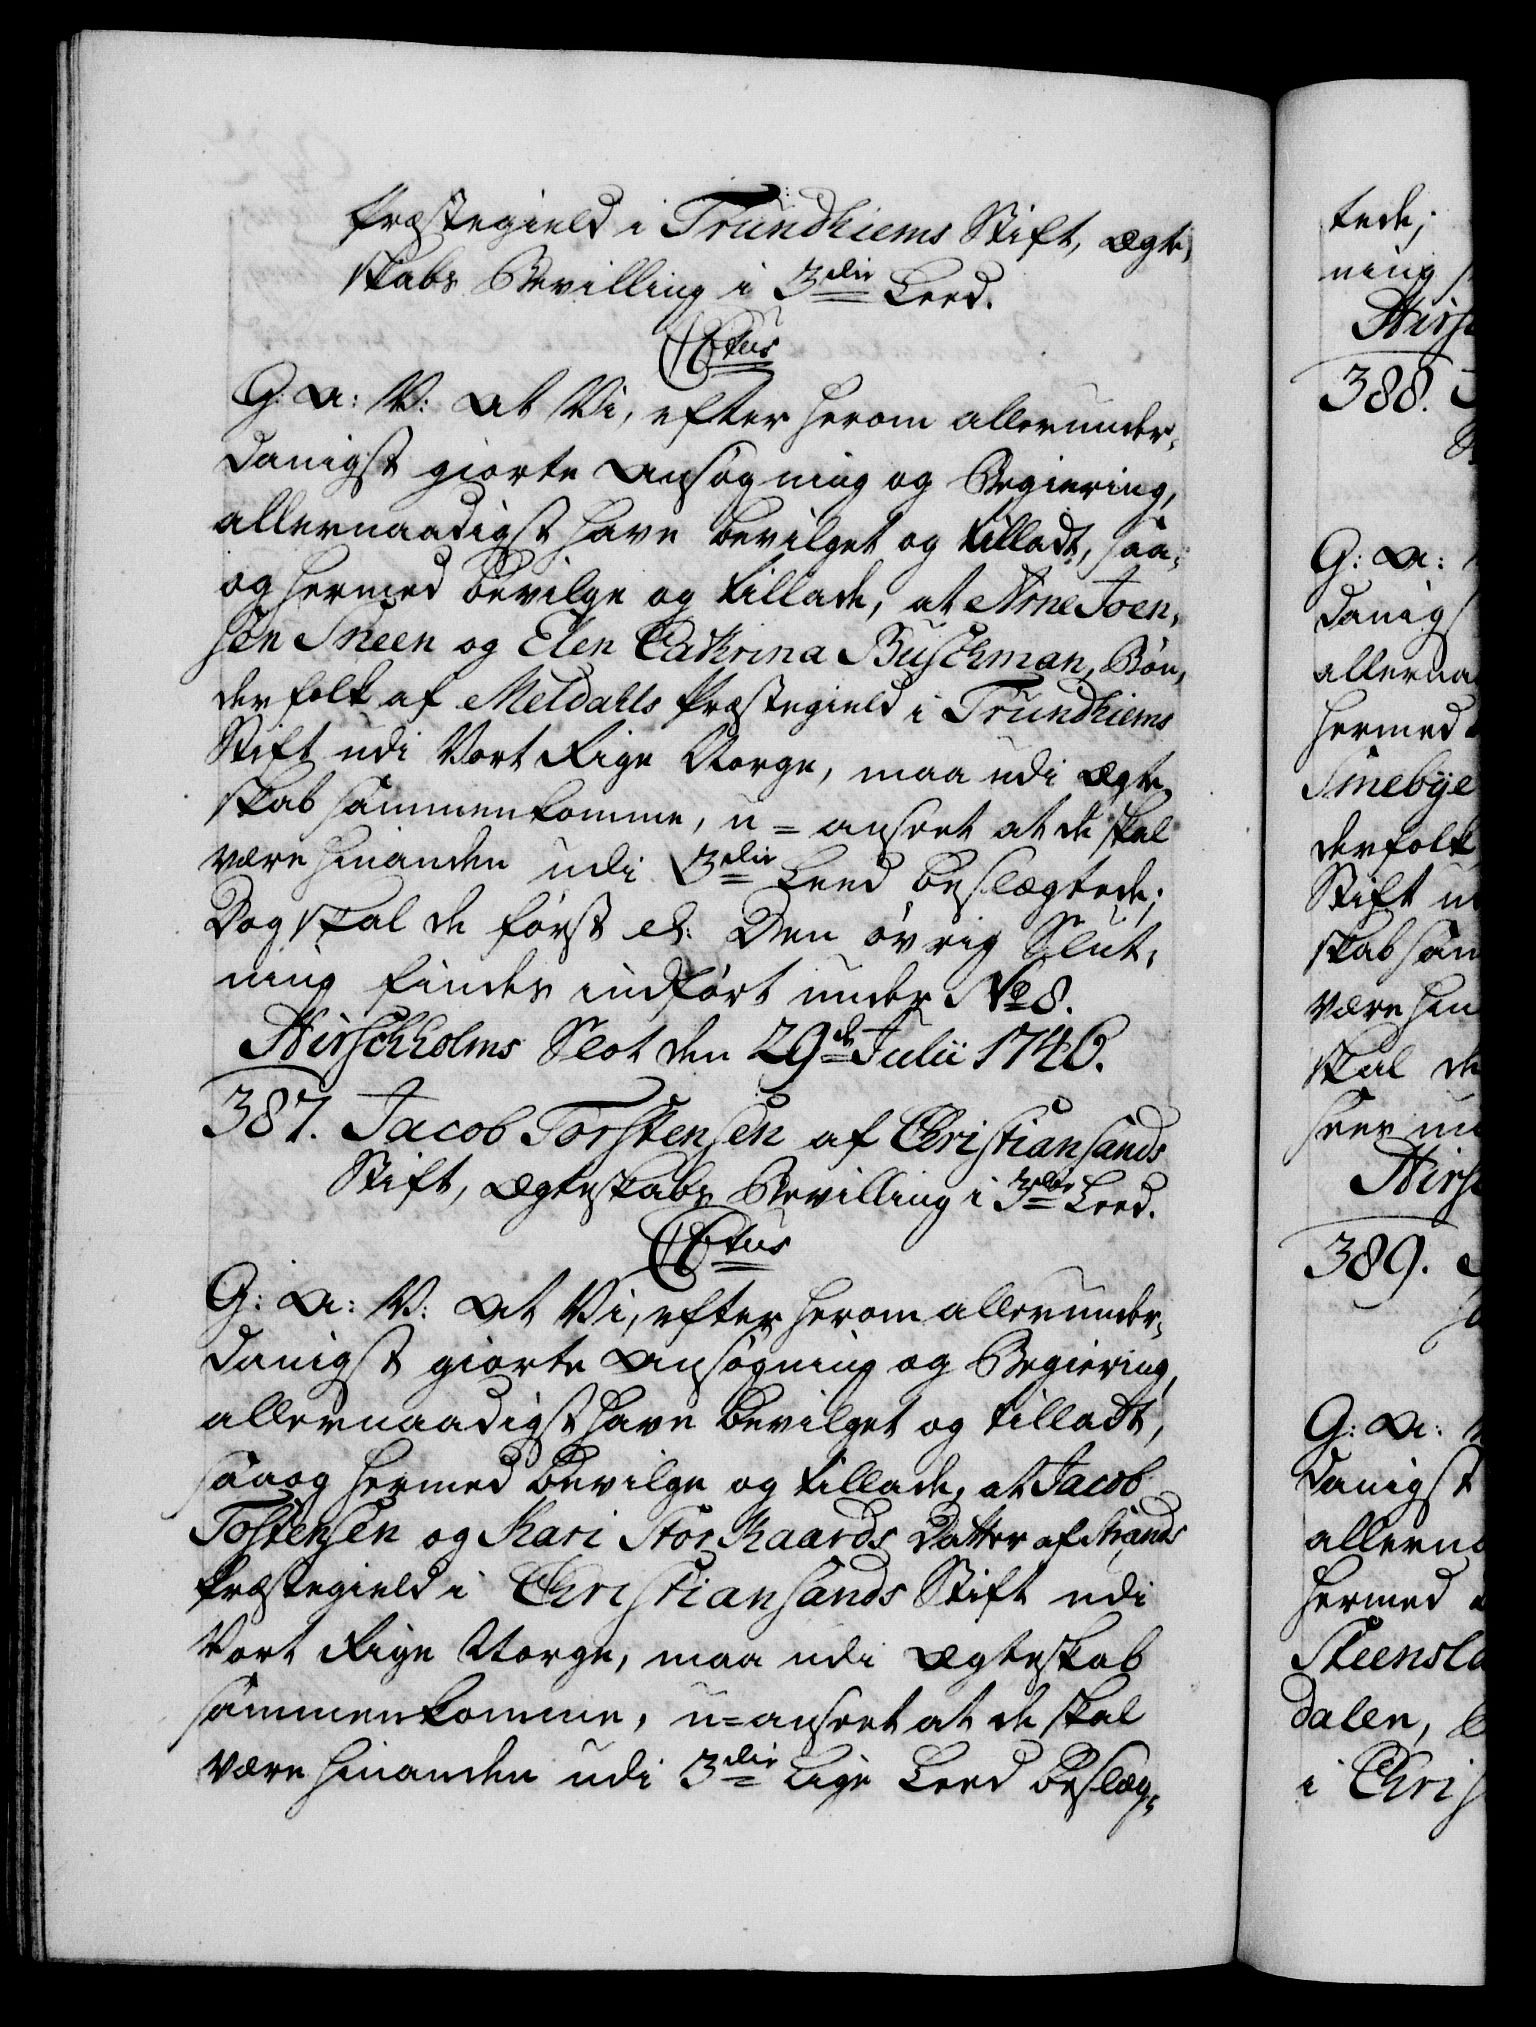 Præstegield i Trundhiems Stift, Ægte,
skabs Bevilling i 3die Leed.
C6tus
G: A: V: At Vi, efter herom allerunder,
danigst giorte Ansøgning og Begiering,
allernaadigst have bevilget og tilladt, saa,
og hermed bevilge og tillade, at Arne Joen,
sen Sneen og Elen Cathrina Buschman, Bøn,
derfolk af Meldahls Præstegield i Trundhiems
Stift udi Vort Rige Norge, maa udi Ægte,
skab sammenkomme, u=anseet at de skal
være hinanden udi 3die Leed beslægtede;
Dog skal de først &c: Den øvrig Slut,
ning findes indført under No 8.
Hirschholms Slot den 29de Julii 1746.
387. Jacob Torstensen af Christiansands
Stift, Ægteskabs Bevilling i 3die Leed.
C6tus
G: A: V: At Vi, efter herom allerunder,
danigst giorte Ansøgning og Begiering,
allernaadigst have bevilget og tilladt,
saaog hermed bevilge og tillade, at Jacob
Tostensen og Kari Storkaards Datter af Strands
Præstegield i Christiansands Stift udi
Vort Rige Norge, maa udi Ægteskab
sammenkomme, u=anseet at de skal
være hinanden udi 3die Lige Leed beslæg,
tede;
ning
388.
G: A:
danigs
allerna
hermed
Smebye
derfolk
Stift u
skab sam
være hin
skal de
389.
G: A:
danigst
allerna
hermed
Steensla
dalen,
i Chris